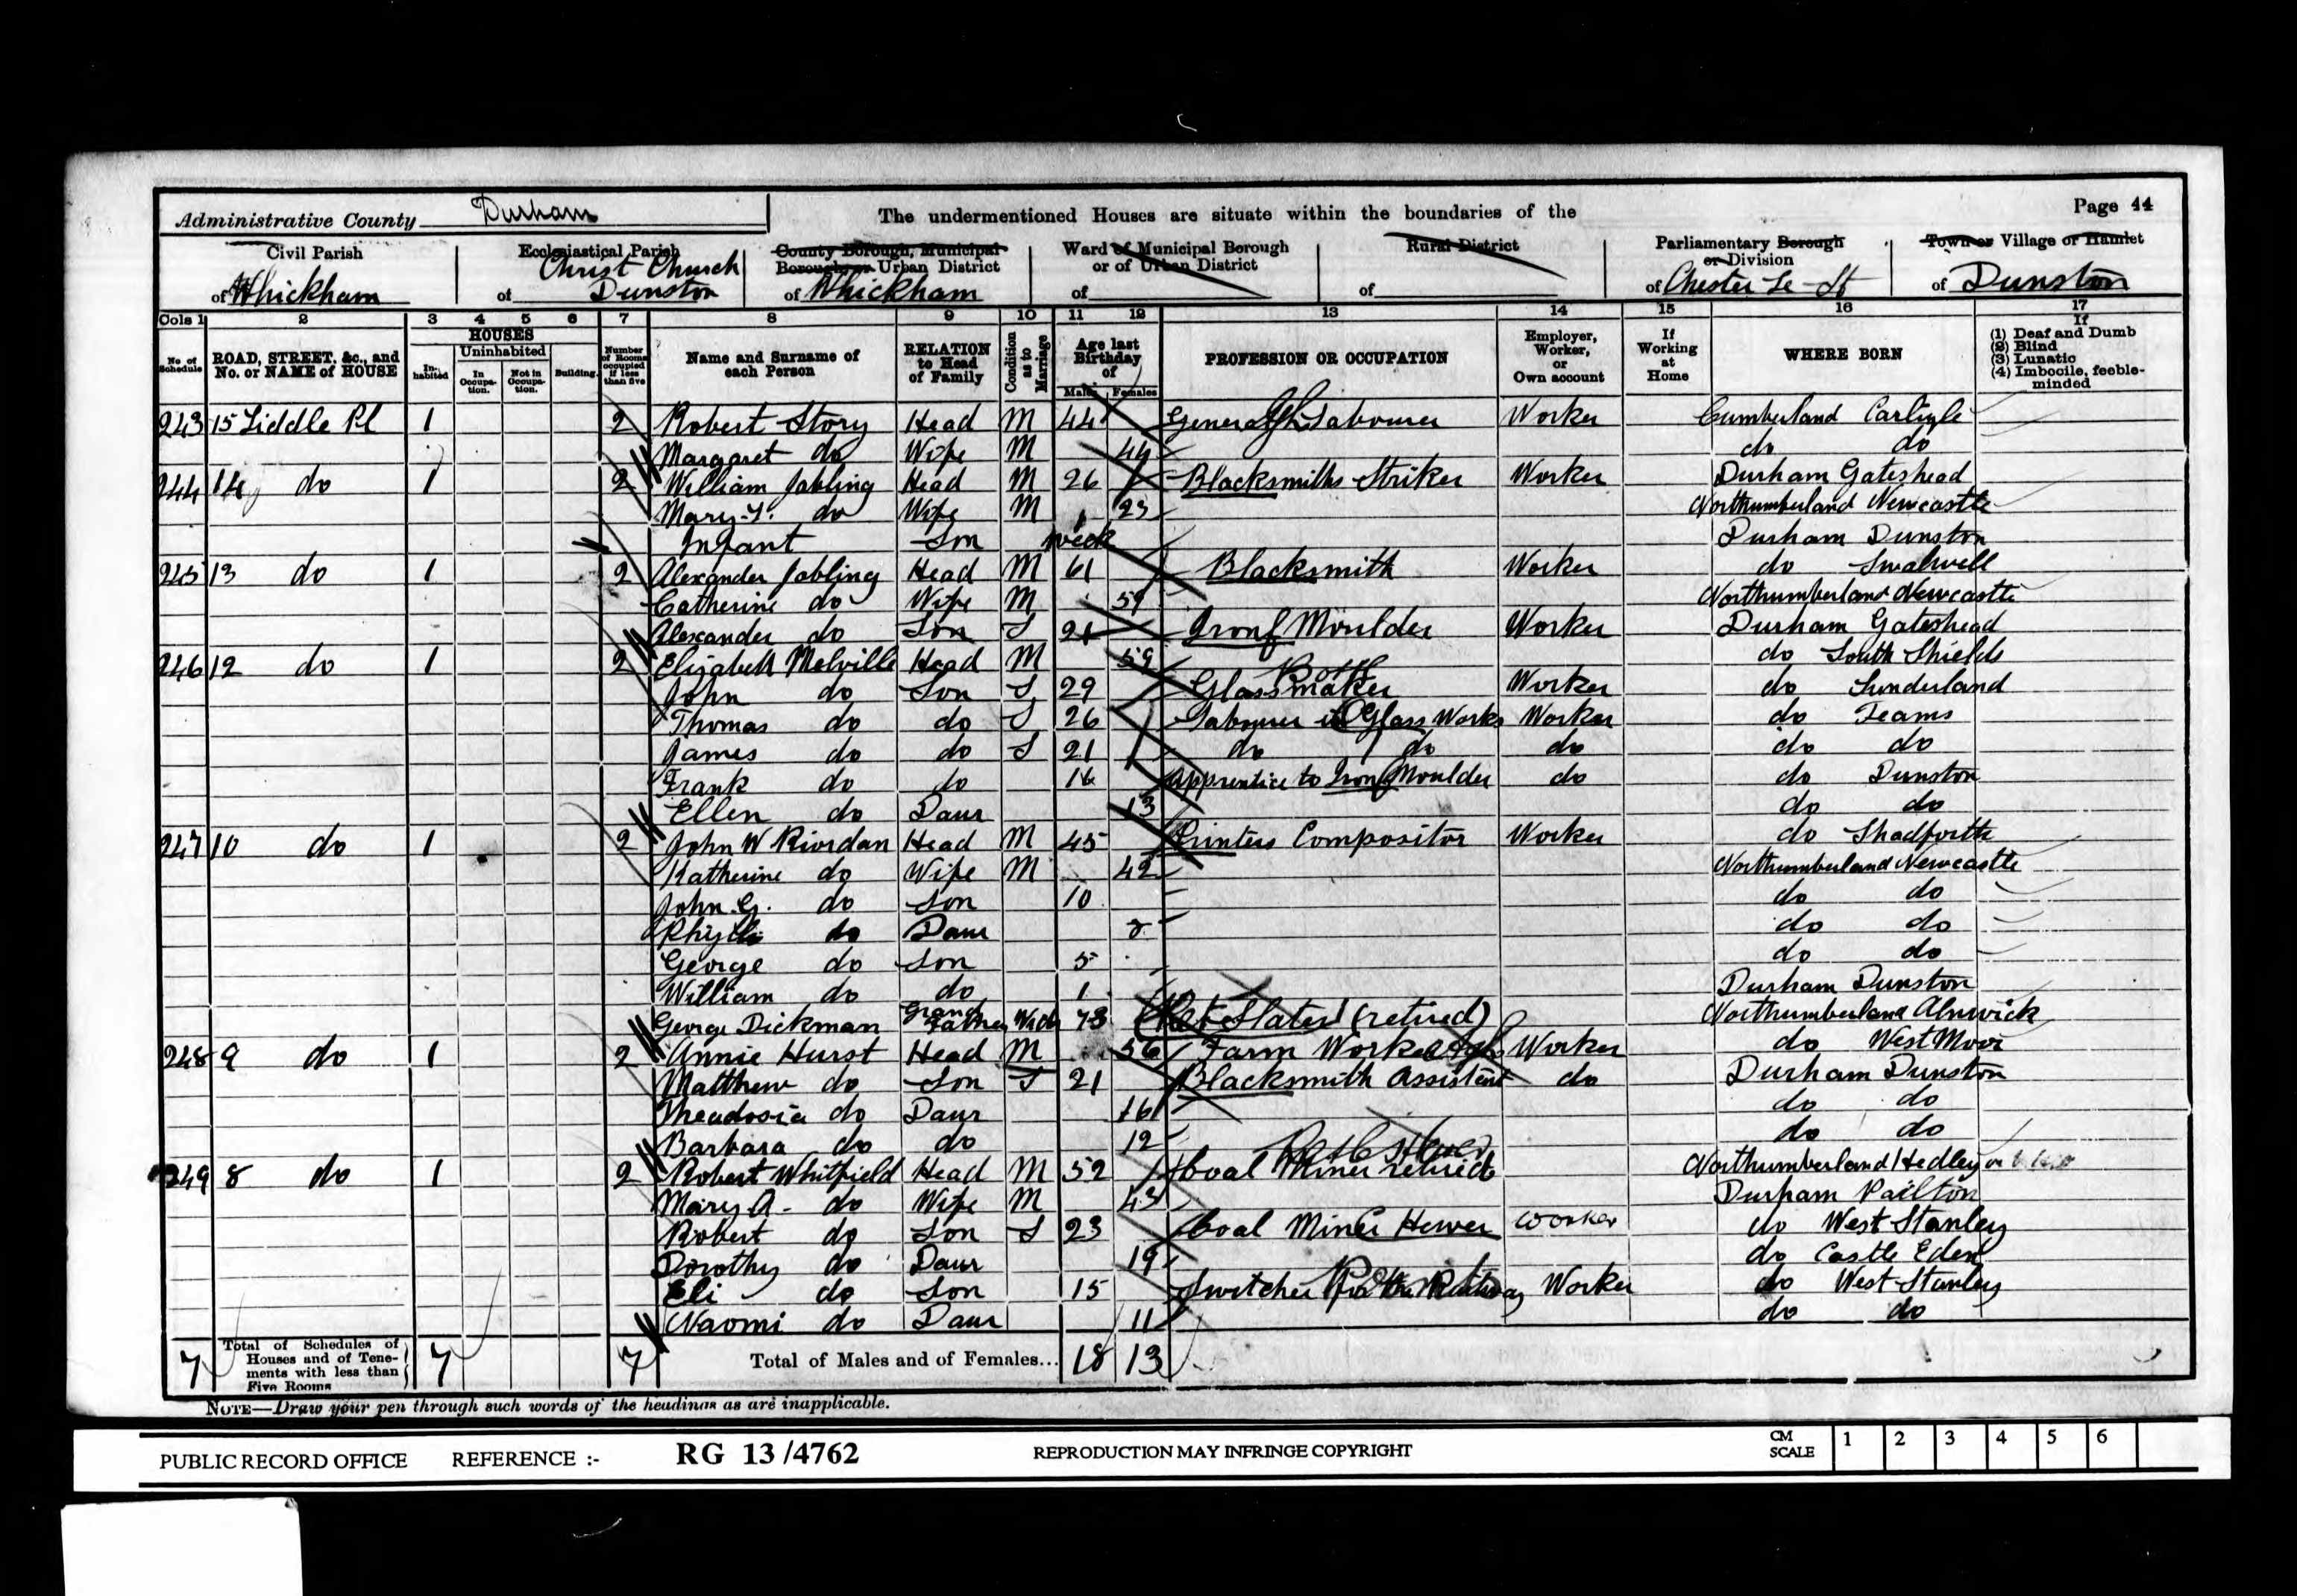 Administrative County Durham
The undermentioned Houses are situate within the boundaries of the
Page 44
Civil Parish
of Whickham
Ecclesiastical Parish
of Christ Church Dunston
County Borough, Municipal Borough or Urban District
of Whickham
Ward of Municipal Borough or of Urban District
of
Rural District
of
Parliamentary Borough or Division
of Chester Le St
Town or Village or Hamlet
of Dunston
Cols 1 2 3 4 5 6 7 8 9 10 11 12 13 14 15 16 17
No of Schedule
ROAD, STREET, &c., and No. or NAME of HOUSE
HOUSES
In-habited
Uninhabited
In Occupa-tion.
Not in Occupa-tion.
Building.
Number of Rooms occupied if less than five
Name and Surname of each Person
RELATION to Head of Family
Condition as to Marriage
Age last Birthday of
Males Females
PROFESSION OR OCCUPATION
Employer, Worker, or Own account
If Working at Home
WHERE BORN
If
(1) Deaf and Dumb
(2) Blind
(3) Lunatic
(4) Imbecile, feeble-minded
243 15 Liddle Pl 1 2 Robert Story Head M 44 General Labourer Worker Cumberland Carlisle
Margaret do Wife M 44 do do
244 14 do 1 2 William Jobling Head M 26 Blacksmiths Striker Worker Durham Gateshead
Mary do Wife M 23 Northumberland Newcastle
Infant Son 1 week Durham Dunston
245 13 do 1 2 Alexander Jobling Head M 61 Blacksmith Worker do Swalwell
Catherine do Wife M 59 Northumberland Newcastle
Alexander do Son S 21 Iron Moulder Worker Durham Gateshead
246 12 do 1 2 Elizabeth Melville Head M 59 do South Shields
John do Son S 29 Glass Bott maker Worker do Sunderland
Thomas do do S 26 Labourer in Glass Works Worker do Teams
James do do S 21 do do do do do
Frank do do 16 Apprentice to Iron Moulder do do Dunston
Ellen do Daur 13 do do
247 10 do 1 2 John W Riordan Head M 45 Printers Compositor Worker do Shadforth
Katherine do Wife M 42 Northumberland Newcastle
John G. do Son 10 do do
Phyllis do Daur do do
George do Son 5 do do
William do do 1 Durham Dunston
George Dickman Grand Father Widr 73 Slater (retired) Northumberland Alnwick
248 9 do 1 2 Annie Hurst Head M 56 Farm Worker Worker do West Moor
Matthew do Son S 21 Blacksmith Assistant do Durham Dunston
Theadosia do Daur 16 do do
Barbara do do 12 do do
249 8 do 1 2 Robert Whitfield Head M 52 Coal Miner retired Northumberland Hedley on
Mary A. do Wife M 43 Durham
Robert do Son S 23 Coal Miner Hewer Worker do West Stanley
Dorothy do Daur 19 do Castle Eden
Eli do Son 15 Switcher Worker do West Stanley
Naomi do Daur 11 do do
7 Total of Schedules of Houses and of Tene-ments with less than Five Rooms 7 7 Total of Males and of Females... 18 13
NOTE—Draw your pen through such words of the headings as are inapplicable.
PUBLIC RECORD OFFICE REFERENCE :- RG 13/4762 REPRODUCTION MAY INFRINGE COPYRIGHT CM SCALE 1 2 3 4 5 6